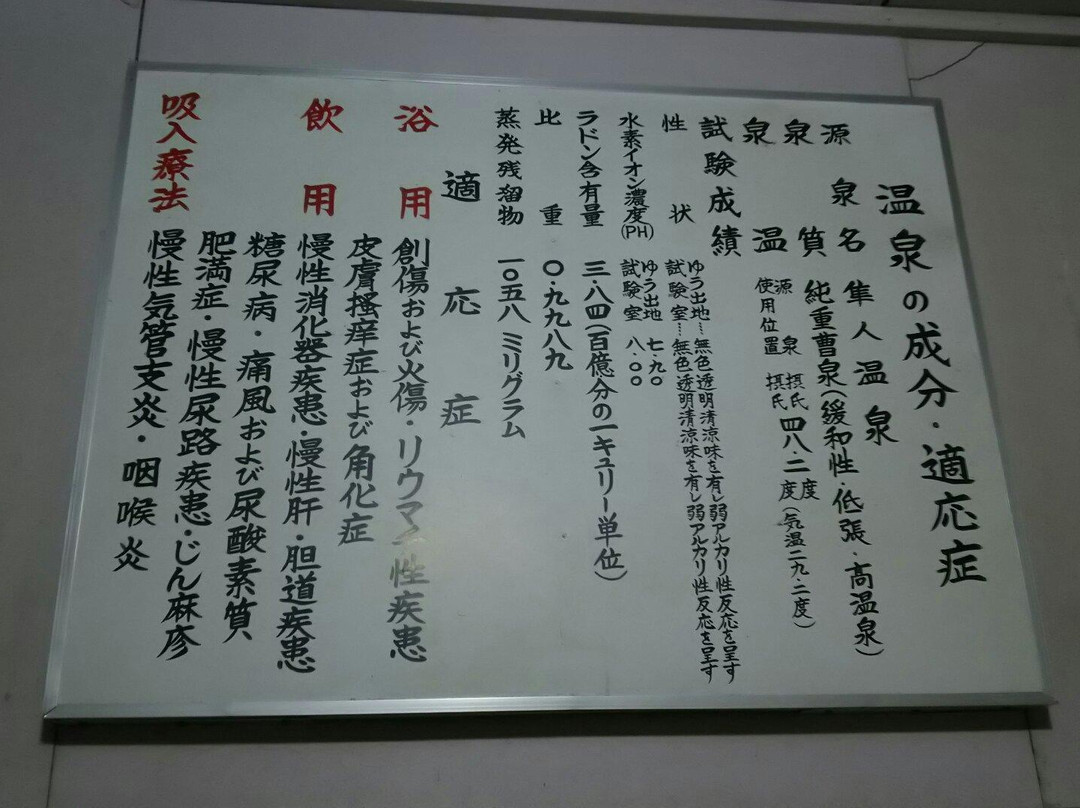 温泉の成分・適応症
源泉名 隼人温泉
泉質 純重曹泉(緩和性・低張・高温泉)
泉温 源泉 摂氏 四八・二度(気温二九・二度)
使用位置 摂氏 度
試験成績
性状 ゆう出地…無色透明清涼味を有し弱アルカリ性反応を呈す
試験室…無色透明清涼味を有し弱アルカリ性反応を呈す
水素イオン濃度(PH) ゆう出地 七・九〇
試験室 八・〇〇
ラドン含有量 三・八四(百億分の一キュリー単位)
比重 〇・九九八九
蒸発残溜物 一〇五八ミリグラム
適応症
浴用 創傷および火傷・リウマチ性疾患
皮膚搔痒症および角化症
飲用 慢性消化器疾患・慢性肝・胆道疾患
糖尿病・痛風および尿酸素質
肥満症・慢性尿路疾患・じん麻疹
吸入療法 慢性気管支炎・咽喉炎